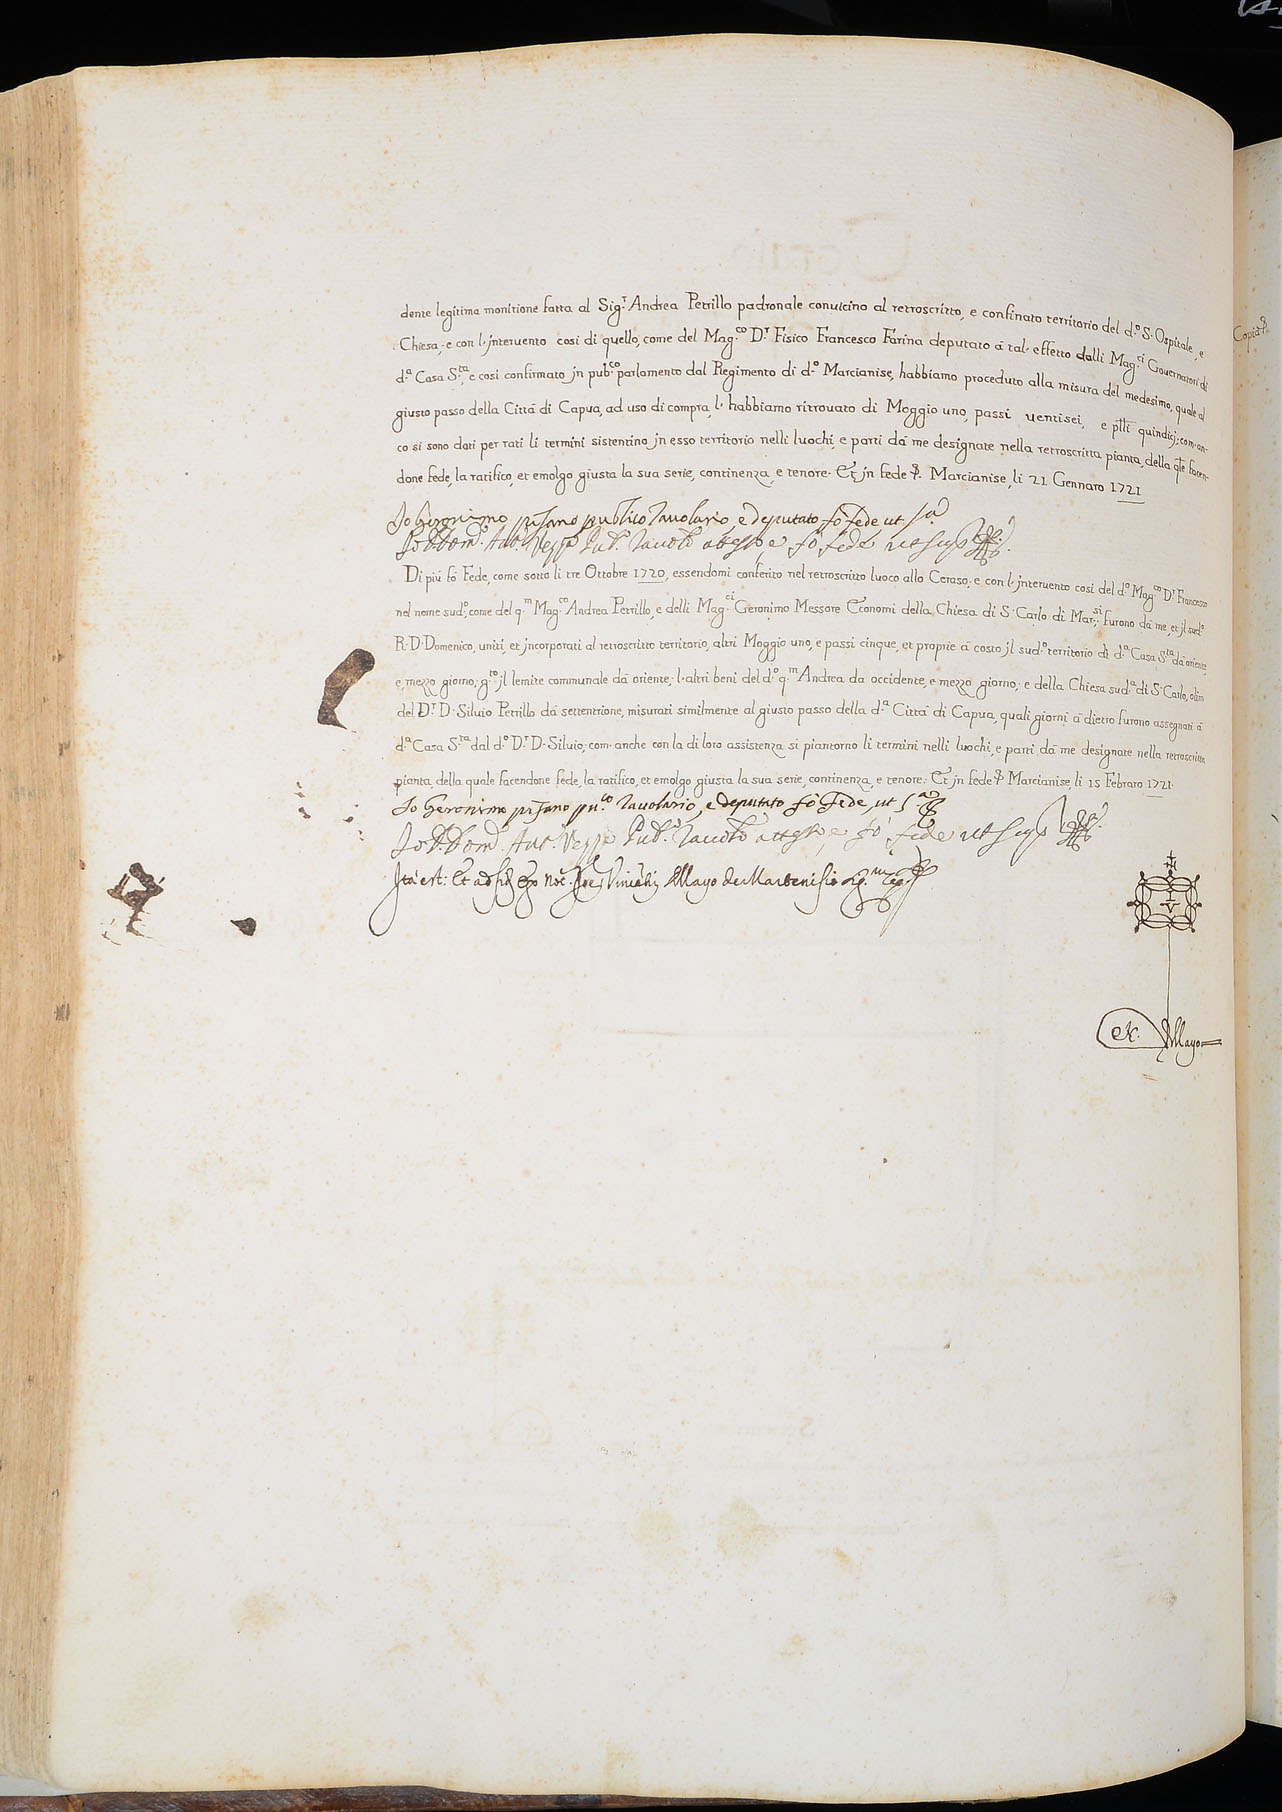 dente legitima monitione fatta al Sig.r Andrea Petrillo padronale conuicino al retroscritto, e confinato territorio del d.o S. Ospitale, e
Chiesa, e con l'jnteruento cosi di quello, come del Mag.co D.r Fisico Francesco Farina deputato á tal' effetto dalli Mag.ci Gouernatori di
d.a Casa S.ta, e cosi confirmato jn pub.co parlamento dal Regimento di d.o Marcianise, habbiamo proceduto alla misura del medesimo, quale al
giusto passo della Cittá di Capua, ad uso di compra, l' habbiamo ritrouato di Moggio uno, passi uentisei, e p̄lli quindici; com'an-
co si sono dati per rati li termini sistentino jn esso territorio nelli luochi, e parti dá me designate nella retroscritta pianta, della q̄le facen-
done fede, la ratifico, et emolgo giusta la sua serie, continenza, e tenore. Et jn fede &. Marcianise, li 21 Gennaro 1721
Io Geronimo pisano publico Tauolario, e deputato fó fede ut s.a
Io D. Dom.o Ant. Ving Pub. Tauol.o attesto, e fó fede ut sup.
Di piú fó Fede, come sotto li tre Ottobre 1720, essendomi conferito nel retroscritto luoco allo Ceraso, e con l'jnteruento cosi del d.o Mag.co D.r Francesco
nel nome sud.o, come del q.m Mag.co Andrea Petrillo, e delli Mag.ci Geronimo Messore Economi della Chiesa di S. Carlo di Mar.si; furono dá me, et jl sud.o
R. D. Domenico, uniti, et jncorporati al retroscritto territorio, altri Moggio uno, e passi cinque, et proprie á costo jl sud.o territorio di d.a Casa S.ta dá oriente,
e, mezzo giorno; g.to jl lemite communale dá oriente, l'altri beni del d.o q.m Andrea da occidente, e mezzo giorno, e della Chiesa sud.a di S. Carlo, olim
del D.r D. Siluio Petrillo dá settentrione, misurati similmente al giusto passo della d.a Cittá di Capua, quali giorni á dietro furono assegnati á
d.a Casa S.ta dal d.o D.r D. Siluio; com'anche con la di loro assistenza si piantorno li termini nelli luochi, e parti dá me designate nella retroscritta
pianta, della quale facendone fede, la ratifico, et emolgo giusta la sua serie, continenza, e tenore. Et jn fede &. Marcianise, li 15 Febraro 1721.
Io Geronimo pisano pu.co Tauolario, e deputato fó Fede, ut s.a
Io D. Dom.o Ant. Pub. Tauol.o attesto, e fó fede ut sup.
Ita est: Et ad fid. Ego Not. Mayo de Martenisio
V
Mayo
Copia